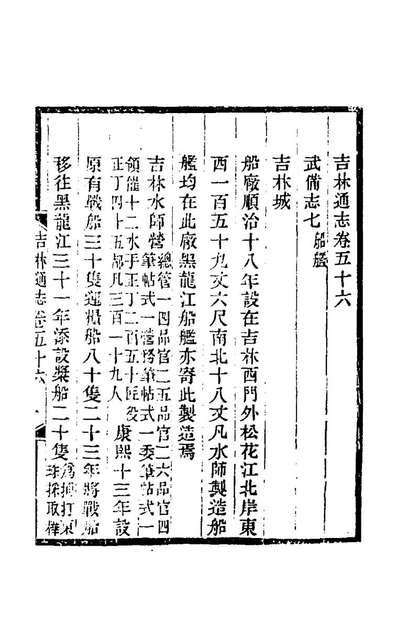 吉林通志卷五十六
武備志七 船艦
吉林城
船廠順治十八年設在吉林西門外松花江北岸東
西一百五十九丈六尺南北十八丈凡水師製造船
艦均在此廠黑龍江船艦亦寄此製造焉
吉林水師營總管一四品官二五品官二六品官四
筆帖式一營務筆帖式一委筆帖式一
領催十二水手正丁二百五十匠役
正丁四十五都凡三百一十九人 康熙十三年設
原有戰船三十隻運糧船八十隻二十三年將戰船
移往黑龍江三十一年添設槳船二十隻爲捕打
年採取樺
吉林通志卷五十六 一